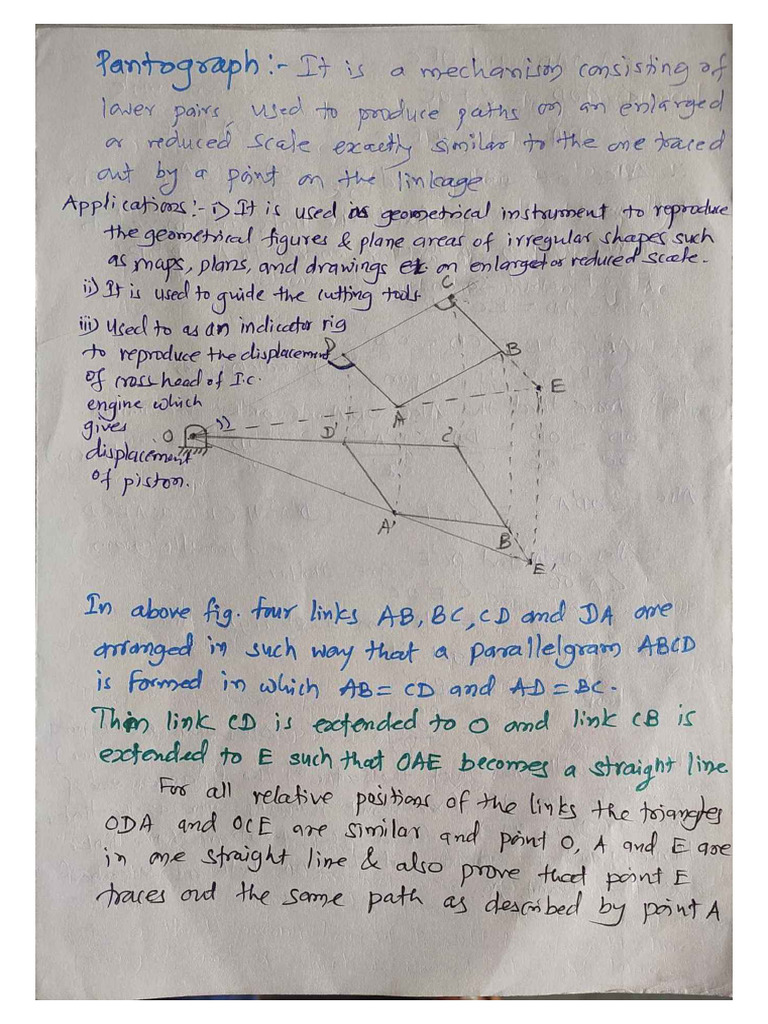 Pantograph :- It is a mechanism consisting of
lower pairs, used to produce paths on an enlarged
or reduced scale exactly similar to the one traced
out by a point on the linkage.
Applications:- i) It is used as geometrical instrument to reproduce
the geometrical figures & plane areas of irregular shapes such
as maps, plans, and drawings etc on enlarged or reduced scale.
C
ii) It is used to guide the cutting tools.
iii) Used to as an indicator rig
D
B
to reproduce the displacement
of cross head of I.C.
E
engine which
A
gives
O
D'
C'
displacement
of piston.
A'
B'
E'
In above fig. four links AB, BC, CD and DA are
arranged in such way that a parallelgram ABCD
is formed in which AB = CD and AD = BC.
Then link CD is extended to O and link CB is
extended to E such that OAE becomes a straight line
For all relative positions of the links the triangles
ODA and OCE are similar and point O, A and E are
in one straight line & also prove that point E
traces out the same path as described by point A